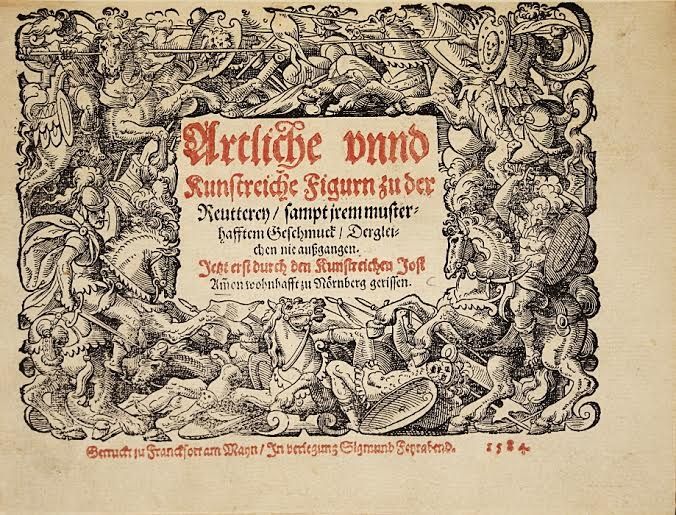 Artliche vnnd
Kunstreiche Figurn zu der
Reutterey / sampt jrem muster-
hafftem Geschmuck / Derglei-
chen nie außgangen.
Jetzt erst durch den Kunstreichen Jost
Am̄en wohnhafft zu Nörnberg gerissen.
Getruckt zu Franckfort am Mayn / In verlegung Sigmund Feyrabend. 1584.